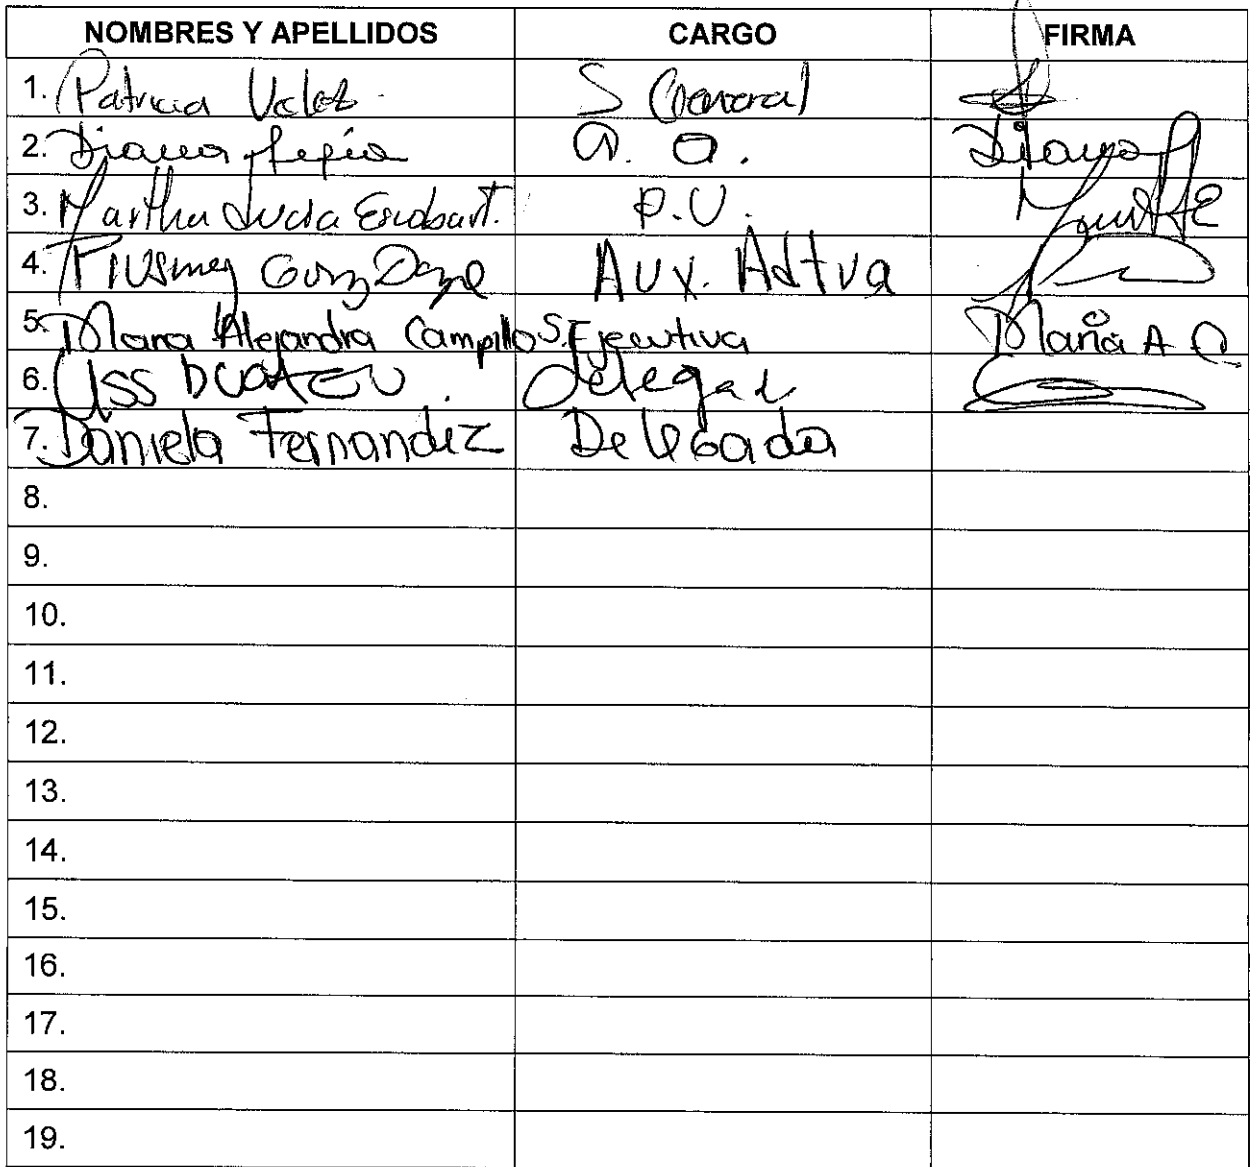 NOMBRES Y APELLIDOS CARGO FIRMA
1. Patricia Velez S General
2. Diana Mejia
3. Martha Lucia Escobar T. P.U.
4. Aux. Adtva
5. Maria Alejandra Campillo S. Ejecutiva Maria A C
6. 
7. Daniela Fernandez Delegada
8.
9.
10.
11.
12.
13.
14.
15.
16.
17.
18.
19.